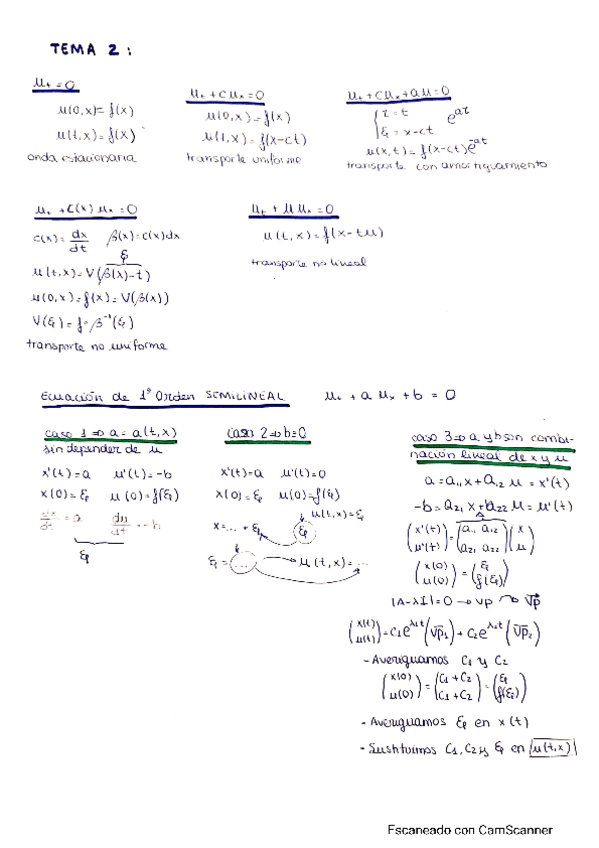 TEMA 2:
u_t = 0
u(0,x) = f(x)
u(t,x) = f(x)
onda estacionaria
u_t + c u_x = 0
u(0,x) = f(x)
u(t,x) = f(x-ct)
transporte uniforme
u_t + c u_x + a u = 0
{ τ = t
ξ = x-ct
e^{aτ}
u(x,t) = f(x-ct)e^{-at}
transporte con amortiguamiento
u_t + c(x) u_x = 0
c(x) = dx/dt β(x) = c(x)dx
ξ
u(t,x) = V(β(x)-t)
u(0,x) = f(x) = V(β(x))
V(ξ) = f∘β^{-1}(ξ)
transporte no uniforme
u_t + u u_x = 0
u(t,x) = f(x-tu)
transporte no lineal
Ecuación de 1º Orden SEMILINEAL u_t + a u_x + b = 0
caso 1 ⇒ a = a(t,x)
sin depender de u
x'(t) = a u'(t) = -b
x(0) = ξ u(0) = f(ξ)
dx/dt = a du/dt = -b
ξ
caso 2 ⇒ b=0
x'(t) = a u'(t) = 0
x(0) = ξ u(0) = f(ξ)
u(t,x) = ξ
x = ... + ξ ξ
ξ = ... → u(t,x) = ...
caso 3 ⇒ a y b son combi-
nación lineal de x y u
a = a₁₁x + a₁₂ u = x'(t)
-b = a₂₁ x + a₂₂ u = u'(t)
A
(x'(t) u'(t)) = (a₁₁ a₁₂ a₂₁ a₂₂)(x u)
(x(0) u(0)) = (ξ f(ξ))
|A-λI| = 0 → vp → vp
(x(t) u(t)) = c₁e^{λ₁t}(vp₁) + c₂e^{λ₂t}(vp₂)
- Averiguamos c₁ y c₂
(x(0) u(0)) = (c₁ + c₂ c₁ + c₂) = (ξ f(ξ))
- Averiguamos ξ en x(t)
- Sustituimos c₁, c₂ y ξ en u(t,x)
Escaneado con CamScanner